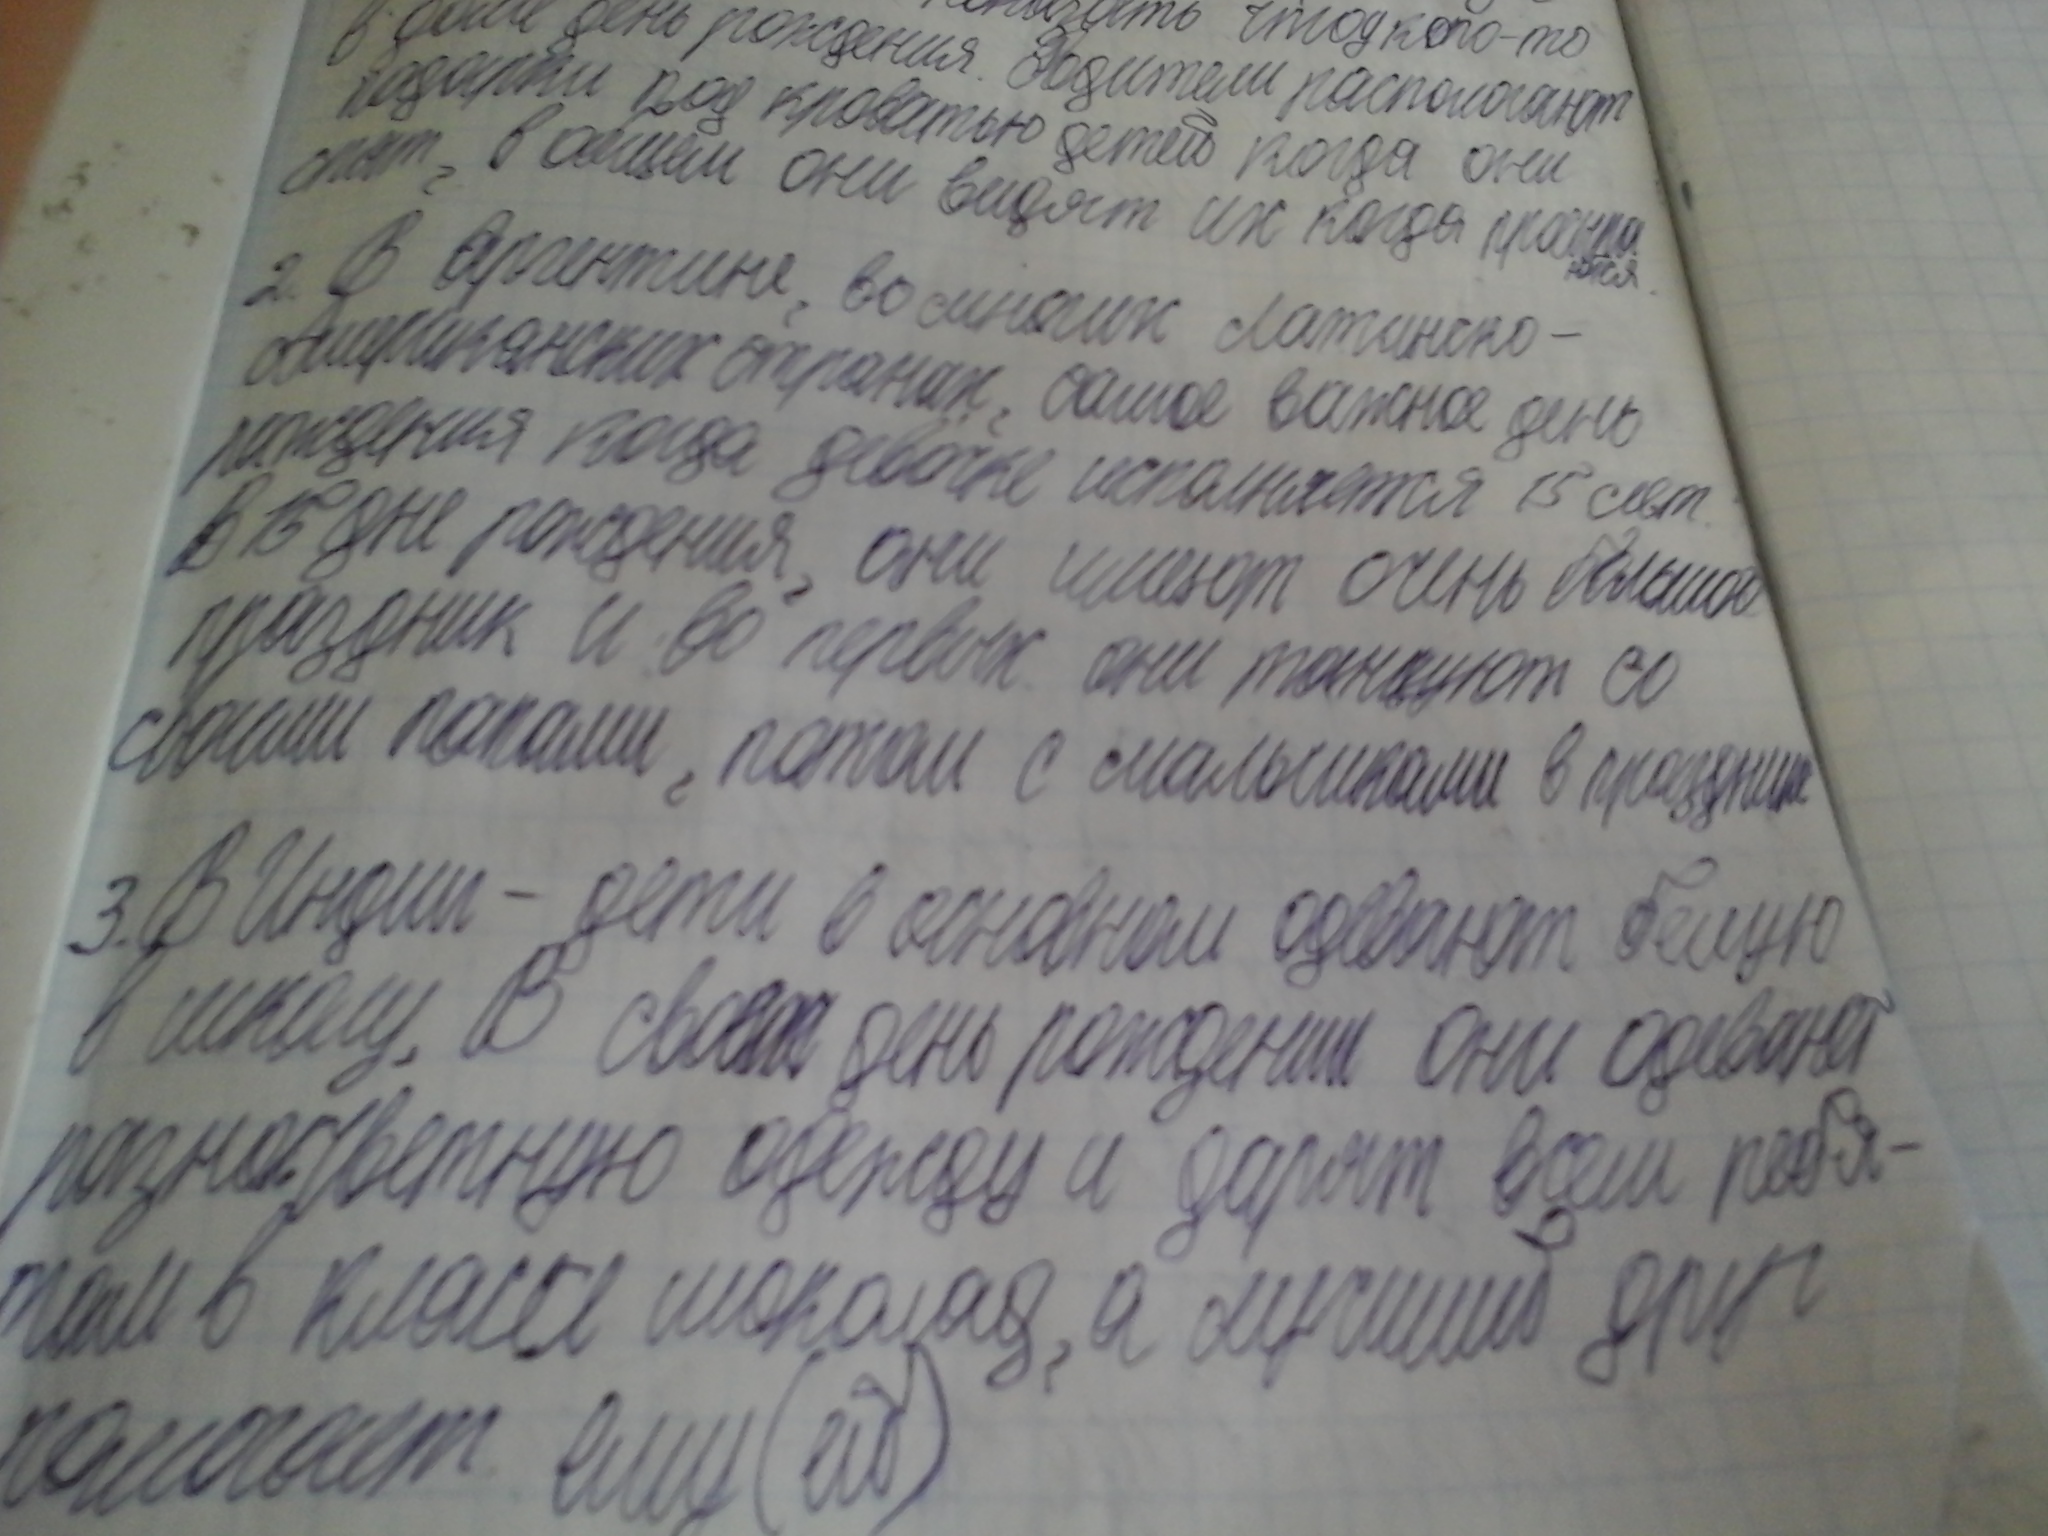 что у кого-то
в доме день рождения. Родители распологают
подарки под кроватью детей когда они
спят, в общем они видят их когда просыпа
ются.
2. В Аргентине, во многих Латинско-
Американских странах, самое важное день
рождения когда девочке исполняется 15 лет.
В 15 дне рождения, они имеют очень большой
праздник и во первых они танцуют со
своими папами, потом с мальчиками в празднике
3. В Индии - дети в основном одевают белую
в школу. В своих день рождении они одевают
разноцветную одежду и дарят всем ребя-
там в классе шоколад, а лучший друг
помогает ему (ей)